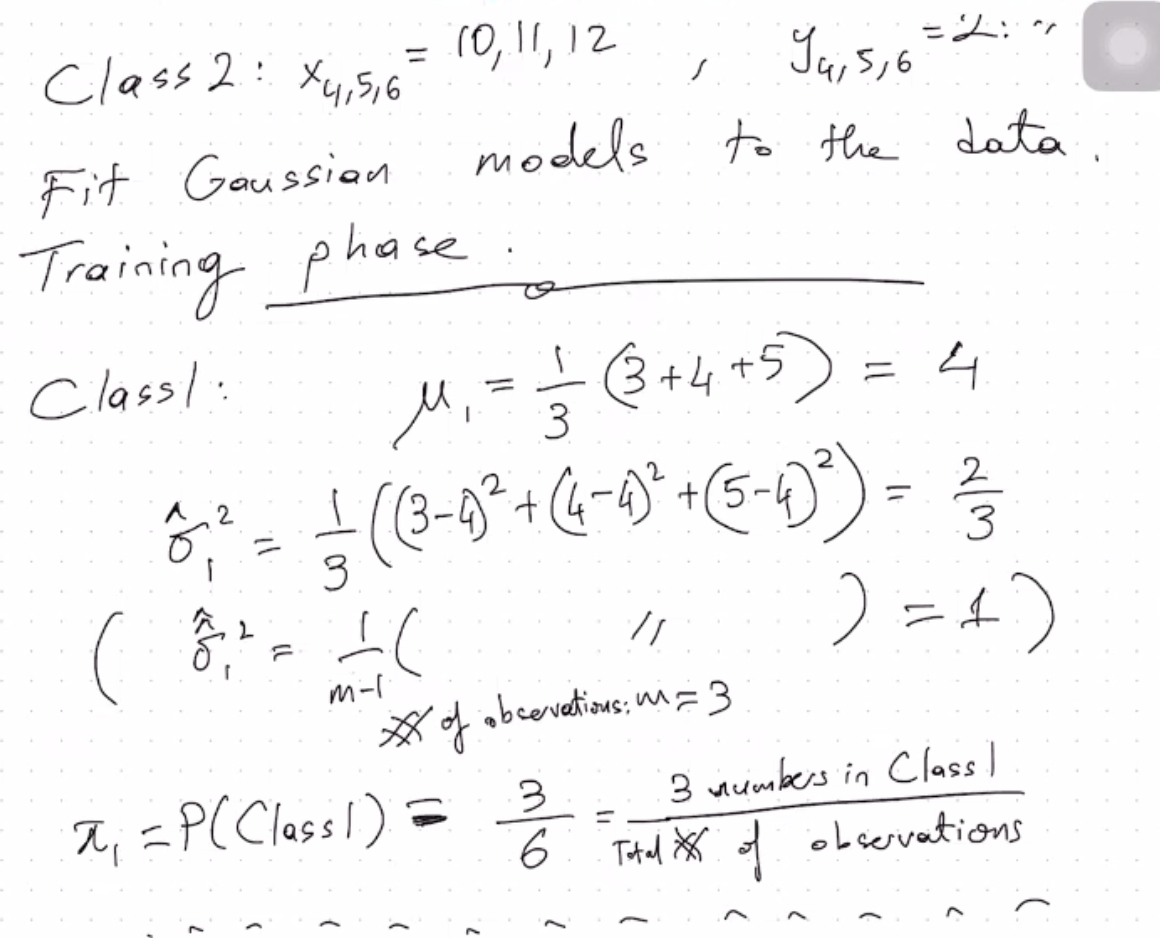 Class 2: x₄,₅,₆ = 10, 11, 12 , y₄,₅,₆ = 2
Fit Gaussian models to the data.
Training phase.
Class 1: μ₁ = 1/3 (3+4+5) = 4
σ̂₁² = 1/3 ((3-4)² + (4-4)² + (5-4)²) = 2/3
( σ̂₁² = 1/(m-1) ( " ) = 1 )
# of observations: m = 3
π₁ = P(Class 1) = 3/6 = 3 numbers in Class 1 / Total # of observations